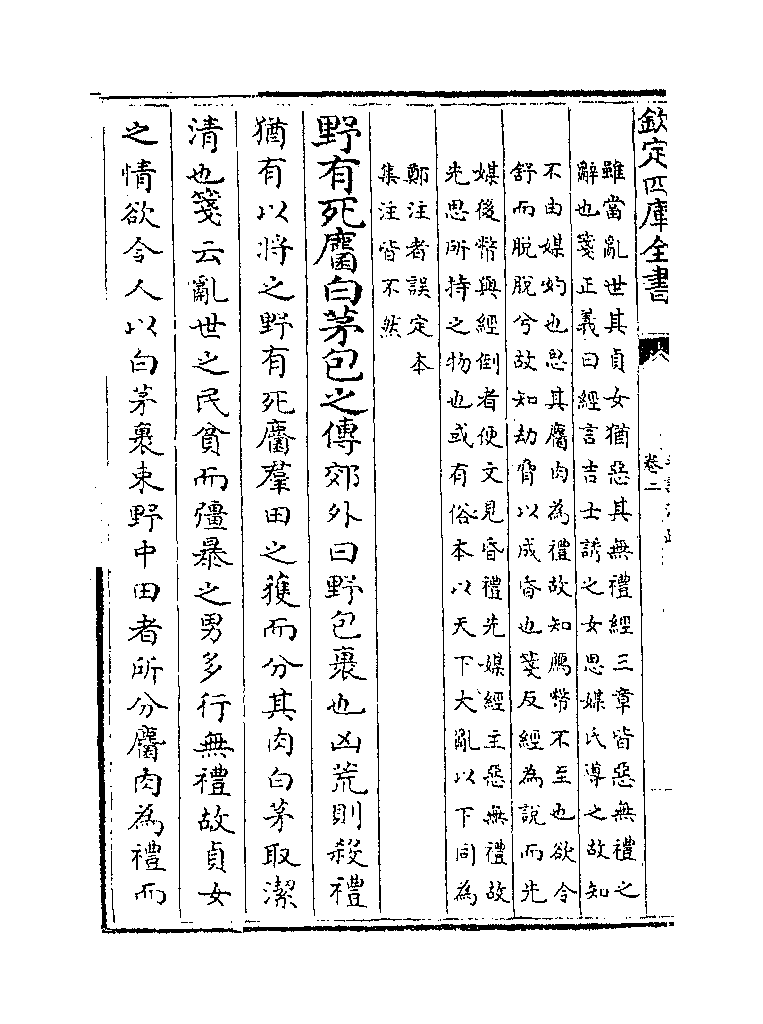 欽定四庫全書
卷二
雖當亂世其貞女猶惡其無禮經三章皆惡無禮之
辭也箋正義曰經言吉士誘之女思媒氏導之故知
不由媒妁也思其麕肉為禮故知鴈幣不至也欲令
舒而脫脫兮故知劫脅以成昏也箋反經為說而先
媒後幣與經倒者便文見昏禮先媒經主惡無禮故
先思所持之物也或有俗本以天下大亂以下同為
鄭注者誤定本
集注皆不然
野有死麕白茅包之傳郊外曰野包裹也凶荒則殺禮
猶有以將之野有死麕羣田之獲而分其肉白茅取潔
清也箋云亂世之民貧而彊暴之男多行無禮故貞女
之情欲令人以白茅裹束野中田者所分麕肉為禮而